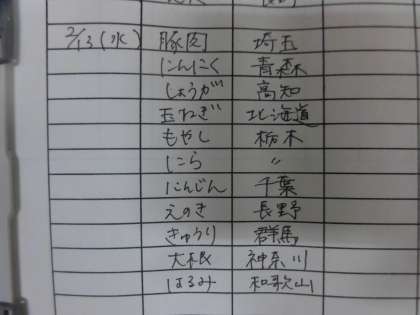 2/13(水) 豚肉 埼玉
にんにく 青森
しょうが 高知
玉ねぎ 北海道
もやし 栃木
にら 〃
にんじん 千葉
えのき 長野
きゅうり 群馬
大根 神奈川
はるみ 和歌山